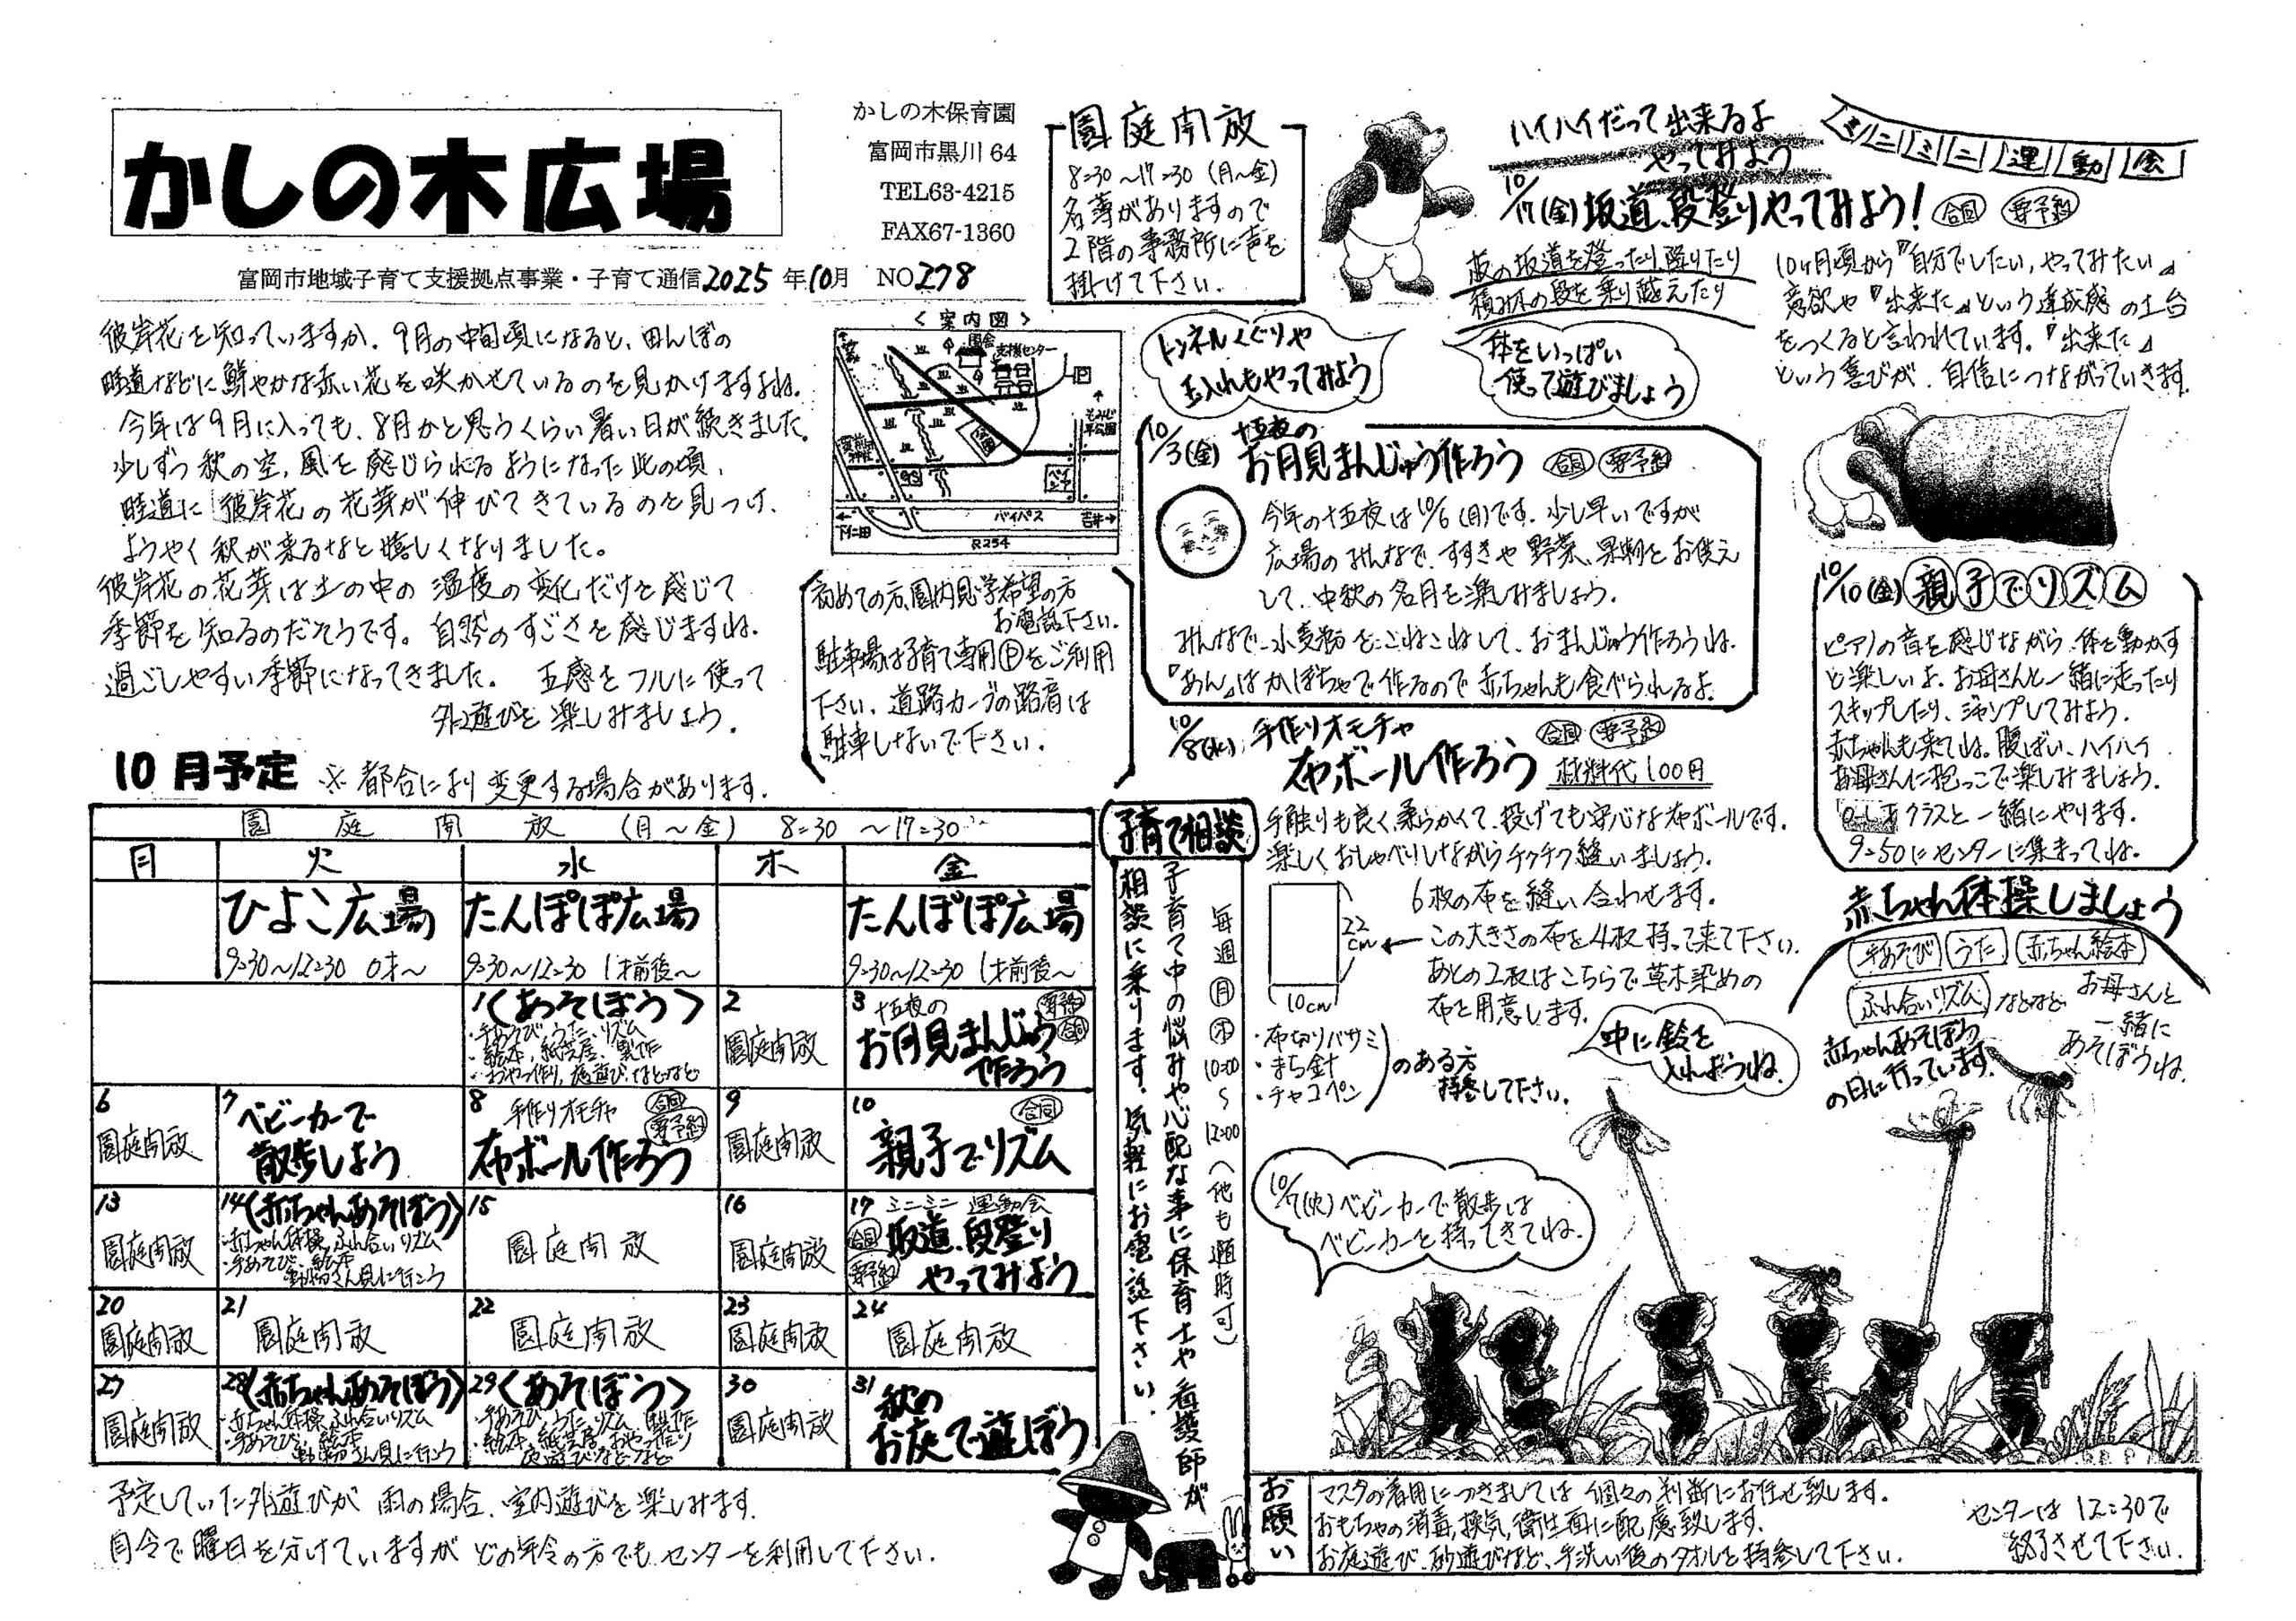 かしの木広場
かしの木保育園
富岡市黒川 64
TEL63-4215
FAX67-1360
富岡市地域子育て支援拠点事業・子育て通信2025 年10月 NO278
彼岸花を知っていますか。9月の中旬頃になると、田んぼの
畦道などに鮮やかな赤い花を咲かせているのを見かけますよね。
今年は9月に入っても、8月かと思うくらい暑い日が続きました。
少しずつ秋の空、風を感じられるようになった此の頃、
畦道に彼岸花の花芽が伸びてきているのを見つけ、
ようやく秋が来るなと嬉しくなりました。
彼岸花の花芽は土の中の温度の変化だけを感じて
季節を知るのだそうです。自然のすごさを感じますね。
過ごしやすい季節になってきました。五感をフルに使って
外遊びを楽しみましょう。
園庭開放
8:30〜17:30 (月〜金)
名簿がありますので
2階の事務所に声を
掛けて下さい。
<案内図>
園舎
支援センター
もみじ平公園
バイパス
下仁田
吉井
R254
初めての方、園内見学希望の方
お電話下さい。
駐車場は子育て専用Ⓟをご利用
下さい。道路カーブの路肩は
駐車しないで下さい。
ミニミニ運動会
ハイハイだって出来るよ
やってみよう
10/17(金)坂道、段登りやってみよう! 合同 要予約
板の坂道を登ったり降りたり
積み木の段を乗り越えたり
トンネルくぐりや
玉入れもやってみよう
体をいっぱい
使って遊びましょう
10ヶ月頃から『自分でしたい、やってみたい』
意欲や『出来た』という達成感の土台
をつくると言われています。『出来た』
という喜びが、自信につながっていきます。
10/3(金) 十五夜の
お月見まんじゅう作ろう 合同 要予約
今年の十五夜は10/6(月)です。少し早いですが
広場のみんなで、すすきや野菜、果物をお供え
して、中秋の名月を楽しみましょう。
みんなで小麦粉をこねこねして、おまんじゅう作ろうね。
『あん』はかぼちゃで作るので赤ちゃんも食べられるよ。
10/8(水) 手作りオモチャ
布ボール作ろう 合同 要予約 材料代100円
手触りも良く、柔らかくて、投げても安心な布ボールです。
楽しくおしゃべりしながらチクチク縫いましょう。
6枚の布を縫い合わせます。
22cm
10cm
この大きさの布を4枚持って来て下さい。
あとの2枚はこちらで草木染めの
布を用意します。
・布切りバサミ
・まち針
・チャコペン
のある方
持参して下さい。
中に鈴を
入れようね。
10/10(金)親子でリズム
ピアノの音を感じながら、体を動かす
と楽しいよ。お母さんと一緒に走ったり
スキップしたり、ジャンプしてみよう。
赤ちゃんも来てね。腹ばい、ハイハイ
お母さんに抱っこで楽しみましょう。
クラスと一緒にやります。
9:50にセンターに集まってね。
赤ちゃん体操しましょう
手あそび うた 赤ちゃん絵本
ふれ合いリズム などなど
お母さんと
一緒に
あそぼうね。
赤ちゃんあそぼう
の日に行っています。
10/7(火)ベビーカーで散歩は
ベビーカーを持ってきてね。
10月予定 ※都合により変更する場合があります。
園庭開放 (月〜金) 8:30 〜17:30
月 火 水 木 金
ひよこ広場 たんぽぽ広場 たんぽぽ広場
9:30〜12:30 0才〜 9:30〜12:30 1才前後〜 9:30〜12:30 1才前後〜
1 <あそぼう>
・手あそび、うた、リズム
・絵本、紙芝居、製作
・おやつ作り、庭遊び、などなど
2 園庭開放
3 十五夜の 要予約 合同
お月見まんじゅう
作ろう
6 園庭開放
7 ベビーカーで
散歩しよう
8 手作りオモチャ 合同 要予約
布ボール作ろう
9 園庭開放
10 合同
親子でリズム
13 園庭開放
14 <赤ちゃんあそぼう>
・赤ちゃん体操、ふれ合いリズム
・手あそび、絵本
動物さん見に行こう
15 園庭開放
16 園庭開放
17 ミニミニ運動会
合同 要予約 坂道、段登り
やってみよう
20 園庭開放
21 園庭開放
22 園庭開放
23 園庭開放
24 園庭開放
27 園庭開放
28 <赤ちゃんあそぼう>
・赤ちゃん体操、ふれ合いリズム
・手あそび、絵本
動物さん見に行こう
29 <あそぼう>
・手あそび、うた、リズム、製作
・絵本、紙芝居、おやつ作り
庭遊びなどなど
30 園庭開放
31 秋の
お庭で遊ぼう
予定していた外遊びが雨の場合、室内遊びを楽しみます。
月令で曜日を分けていますがどの年令の方でもセンターを利用して下さい。
子育て相談
毎週月木10:00〜12:00(他も随時可)
子育て中の悩みや心配な事に保育士や看護師が
相談に乗ります。気軽にお電話下さい。
お願い
マスクの着用につきましては個々の判断にお任せ致します。
おもちゃの消毒、換気、衛生面に配慮致します。
お庭遊び、砂遊びなど、手洗い後のタオルを持参して下さい。
センターは12:30で
終了させて下さい。